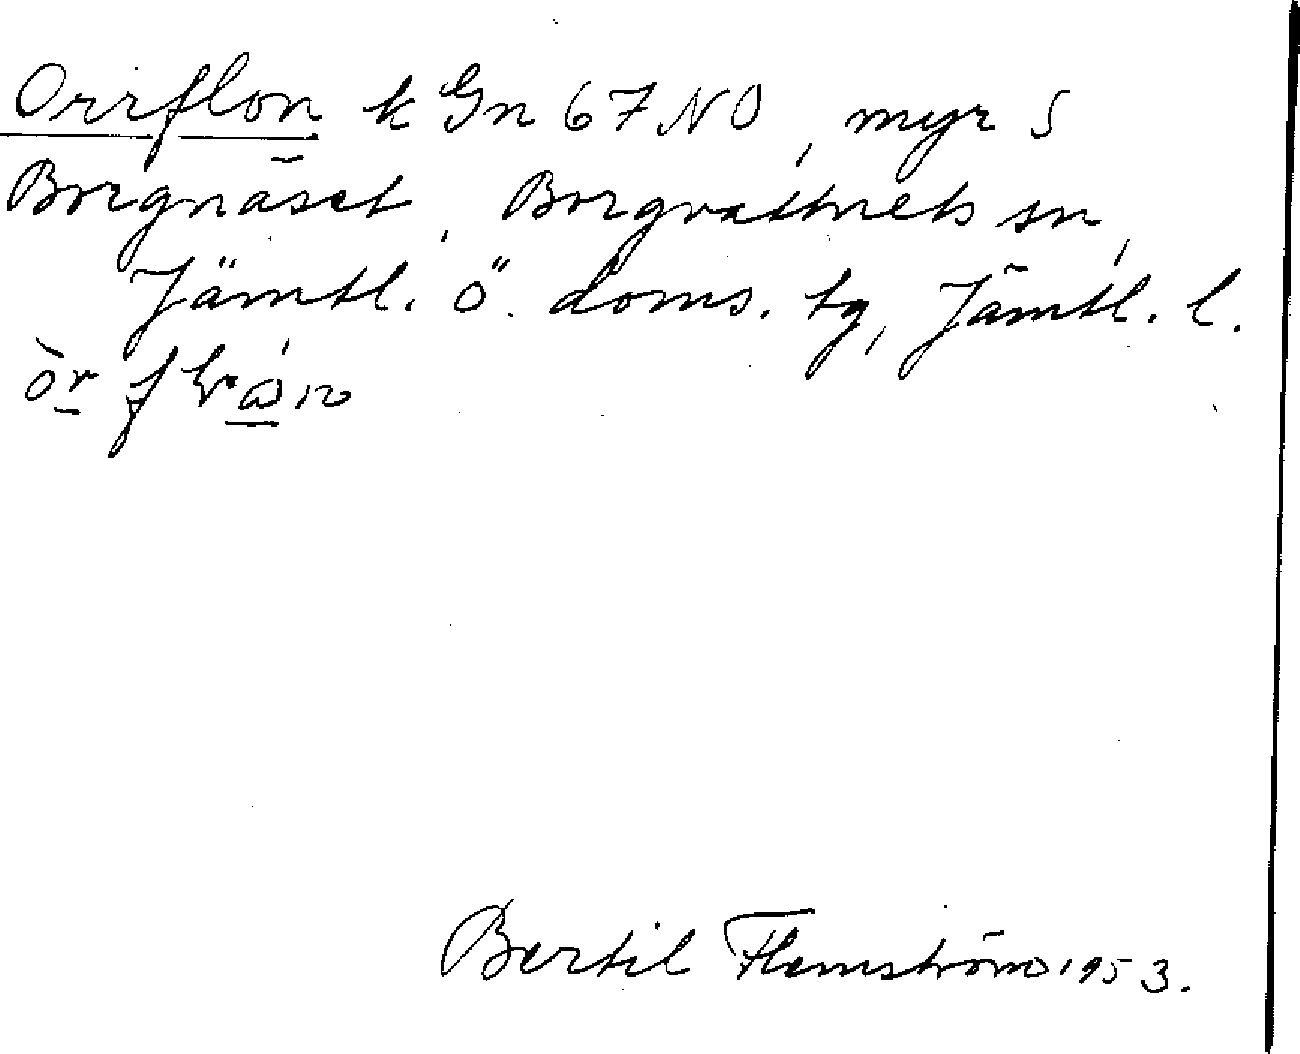 Orrflon k Gn 67 NO, myr S
Borgnäset, Borgvattnets sn,
Jämtl. Ö. doms. tg, Jämtl. l.
Bertil Flemström 1953.